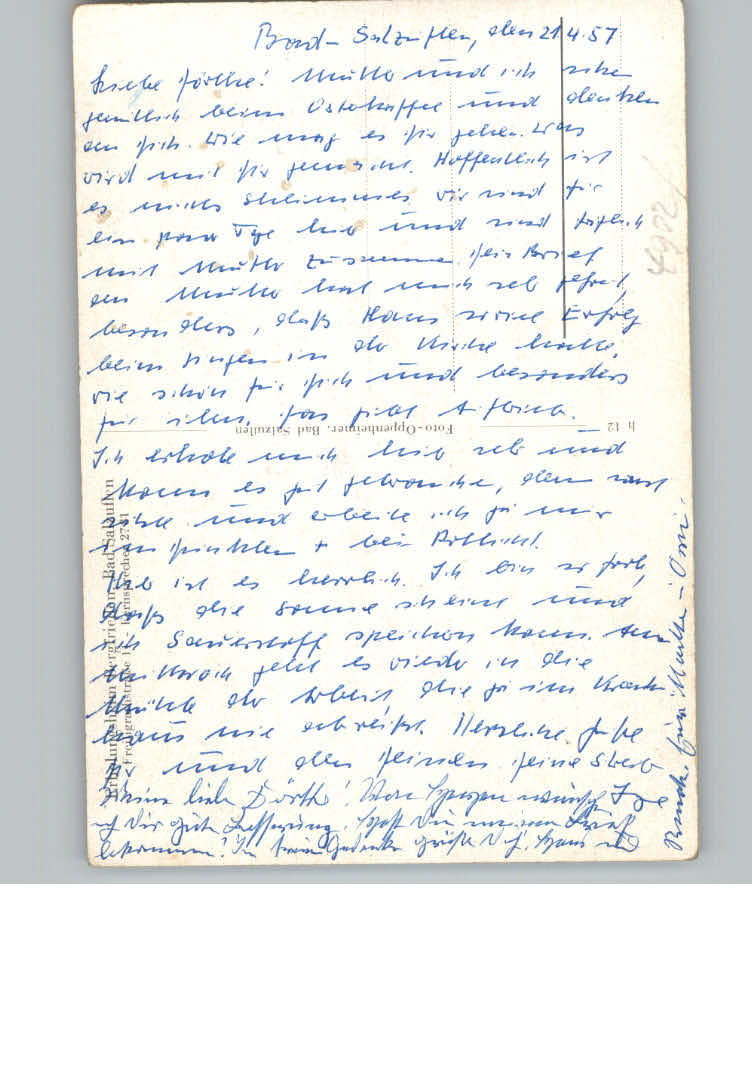 Bad-Salzuflen, den 21.4.57
Liebe Dörthe! Mutter und ich sitzen
gemütlich beim Osterkaffee und denken
an Dich. Wie mag es Dir gehen. Was
wird mit Dir gemacht. Hoffentlich ist
es nichts Schlimmes. Wir sind für
ein paar Tage hier und sind täglich
mit Mutter zusammen. Dein Brief
an Mutter hat mich sehr gefreut,
besonders, daß Hans soviel Erfolg
beim Singen in der Kirche hatte.
Wie schön für Dich und besonders
für ihn. Das gibt Auftrieb.
Ich erhole mich hier sehr und
kann es gut gebrauchen, denn sonst
und arbeite ich ja nur
im Dunklen + bei Rotlicht.
Hier ist es herrlich. Ich bin so froh,
daß die Sonne scheint und
ich Sauerstoff speichern kann. Am
Mittwoch geht es wieder in die
Mühle der Arbeit, die ja im Kranken
haus nie abreißt. Herzliche Grüße
Dir und den Deinen. Deine
Meine liebe Dörthe! Von Herzen wünsche
ich Dir gute Besserung. Hast Du meinen Brief
bekommen? In Gedanken grüßt Dich, Hans und
Deine Mutter - Omi.
h 12 Foto-Oppenheimer, Bad Salzuflen
Erholungsheim Bergfrieden, Bad Salzuflen
Freiligrathstraße Fernsprecher
4902